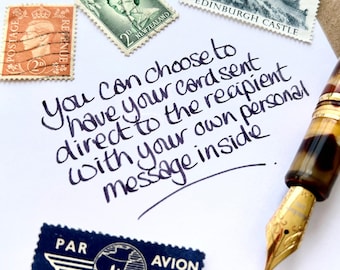 POSTAGE
REVENUE
2d
NEW ZEALAND
EDINBURGH CASTLE
You can choose to
have your card sent
direct to the recipient
with your own personal
message inside
PAR AVION